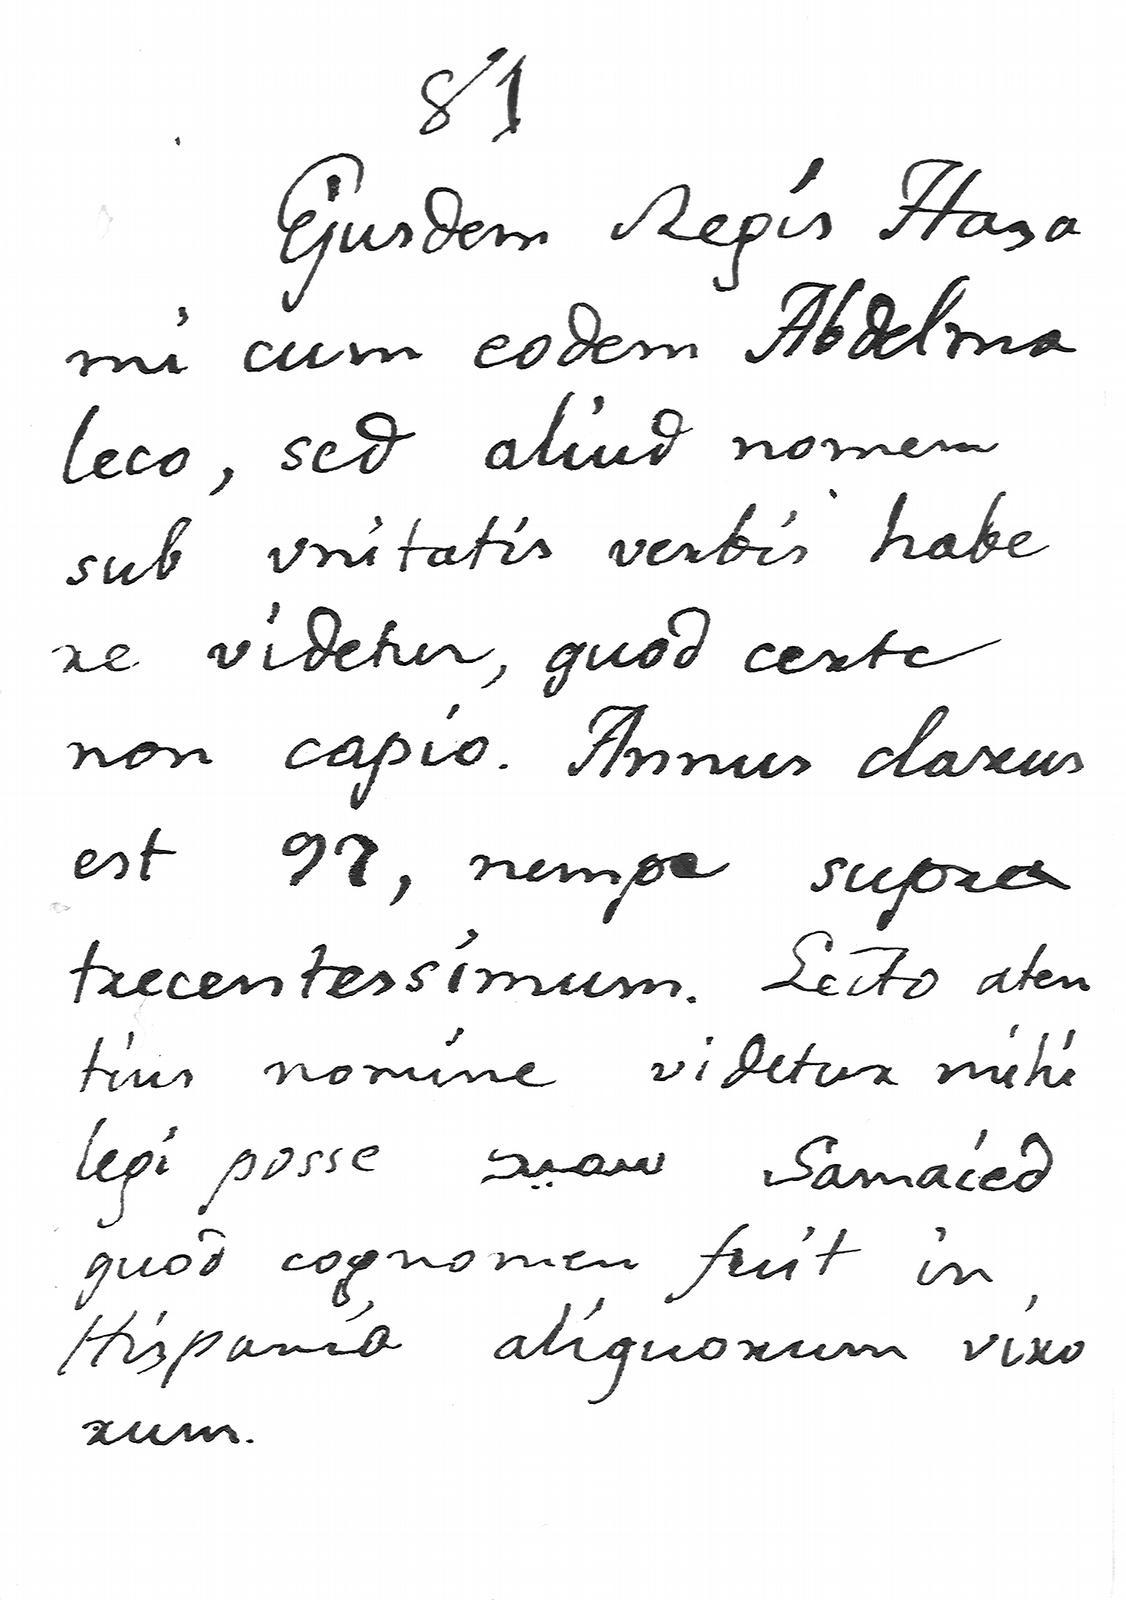 81
Ejusdem Regis Haxa
mi cum eodem Abdelma
leco, sed aliud nomem
sub vnitatis verbis habe
re videtur, quod certe
non capio. Annus clarus
est 97, nempe supra
trecentessimum. Lecto aten
tius nomine videtur mihi
legi posse Samaied
quod cognomen fuit in
Hispania aliquorum viro
rum.